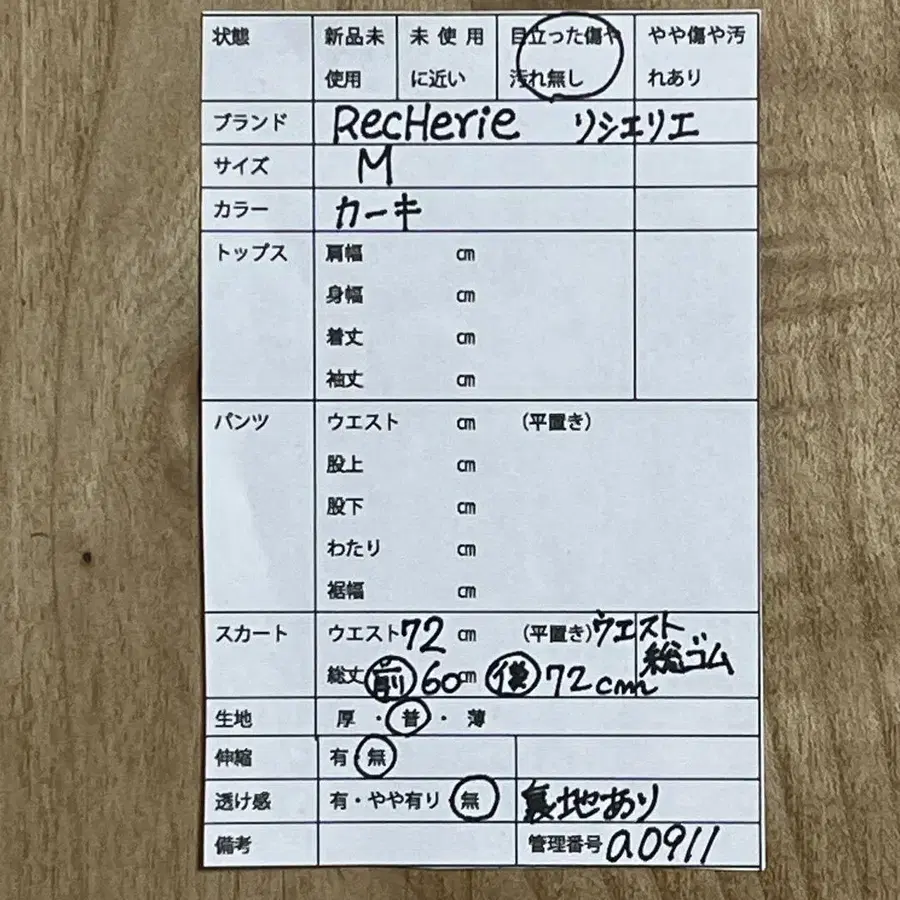 状態 新品未使用 未使用に近い 目立った傷や汚れ無し やや傷や汚れあり
ブランド RecHerie リシエリエ
サイズ M
カラー カーキ
トップス 肩幅 ㎝
身幅 ㎝
着丈 ㎝
袖丈 ㎝
パンツ ウエスト ㎝ (平置き)
股上 ㎝
股下 ㎝
わたり ㎝
裾幅 ㎝
スカート ウエスト 72 ㎝ (平置き) ウエスト
総ゴム
総丈 前 60 ㎝ 後 72 cm
生地 厚・普・薄
伸縮 有・無
透け感 有・やや有り・無 裏地あり
備考 管理番号 a0911